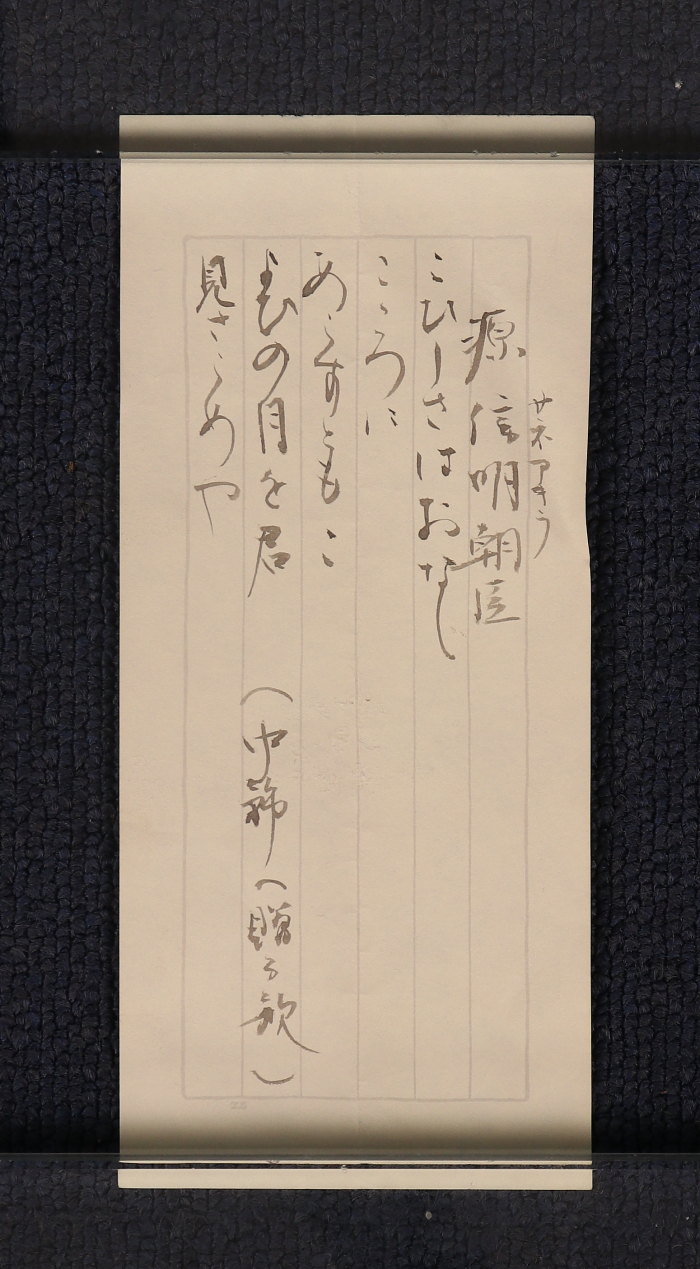 サネアキラ
源信明朝臣
こひしさはおなし
こゝろに
あらすともこ
よひの月を君
(中務へ贈る歌)
見さらめや